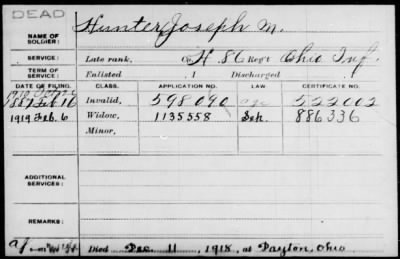 DEAD
NAME OF SOLDIER: Hunter, Joseph M.
SERVICE: Late rank, Co. H, 86 Reg't Ohio Inf.
TERM OF SERVICE: Enlisted , 1 Discharged , 1
DATE OF FILING. CLASS. APPLICATION NO. LAW. CERTIFICATE NO.
1887 Feb 16 Invalid, 598090 522002
1919 Feb. 6 Widow, 1135558 886336
Minor,
ADDITIONAL SERVICES:
REMARKS:
Died Dec. 11, 1918, at Dayton, Ohio